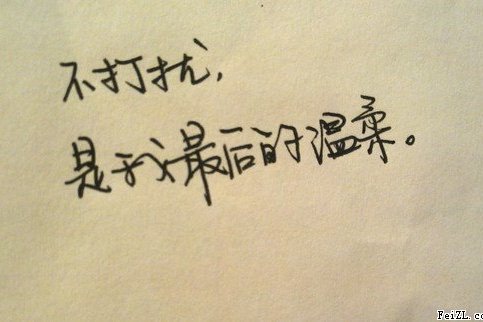 不打扰,
是我最后的温柔。
FeiZL.co